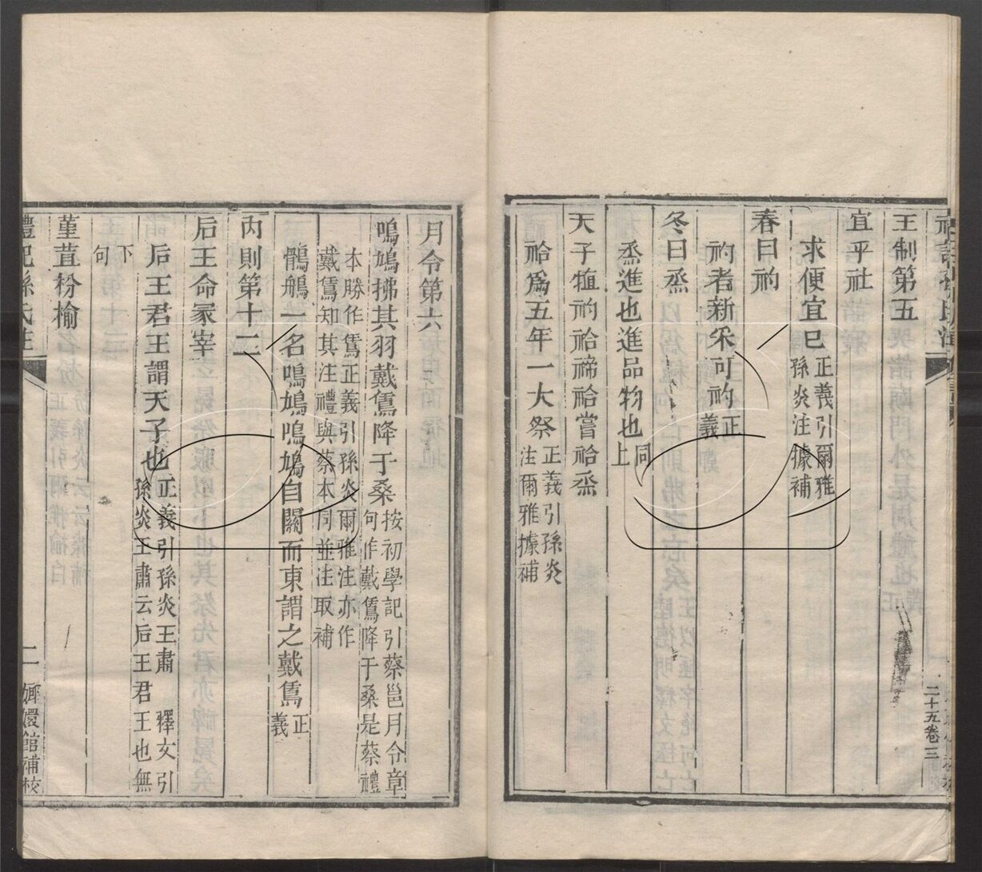 王制第五
宜乎社
求便宜巳正義引爾雅
孫炎注據補
春曰礿
礿者新釆可礿正
義
冬曰烝
烝進也進品物也同
上
天子犆礿祫禘祫嘗祫烝
祫爲五年一大祭正義引孫炎
注爾雅據補
二十五卷三
月令第六
鳴鳩拂其羽戴鵀降于桑按初學記引蔡邕月令章
句作戴鵀降于桑是蔡禮
本勝作鵀正義引孫炎爾雅注亦作
戴鵀知其注禮與蔡本同並注取補
鶻鵃一名鳴鳩鳴鳩自關而東謂之戴鵀正
義
內則第十二
后王命冢宰
后王君王謂天子也正義引孫炎王肅 釋文引
孫炎王肅云后王君王也無
下
句
堇荁枌榆
禮記孫氏注
二
嫏嬛館補校